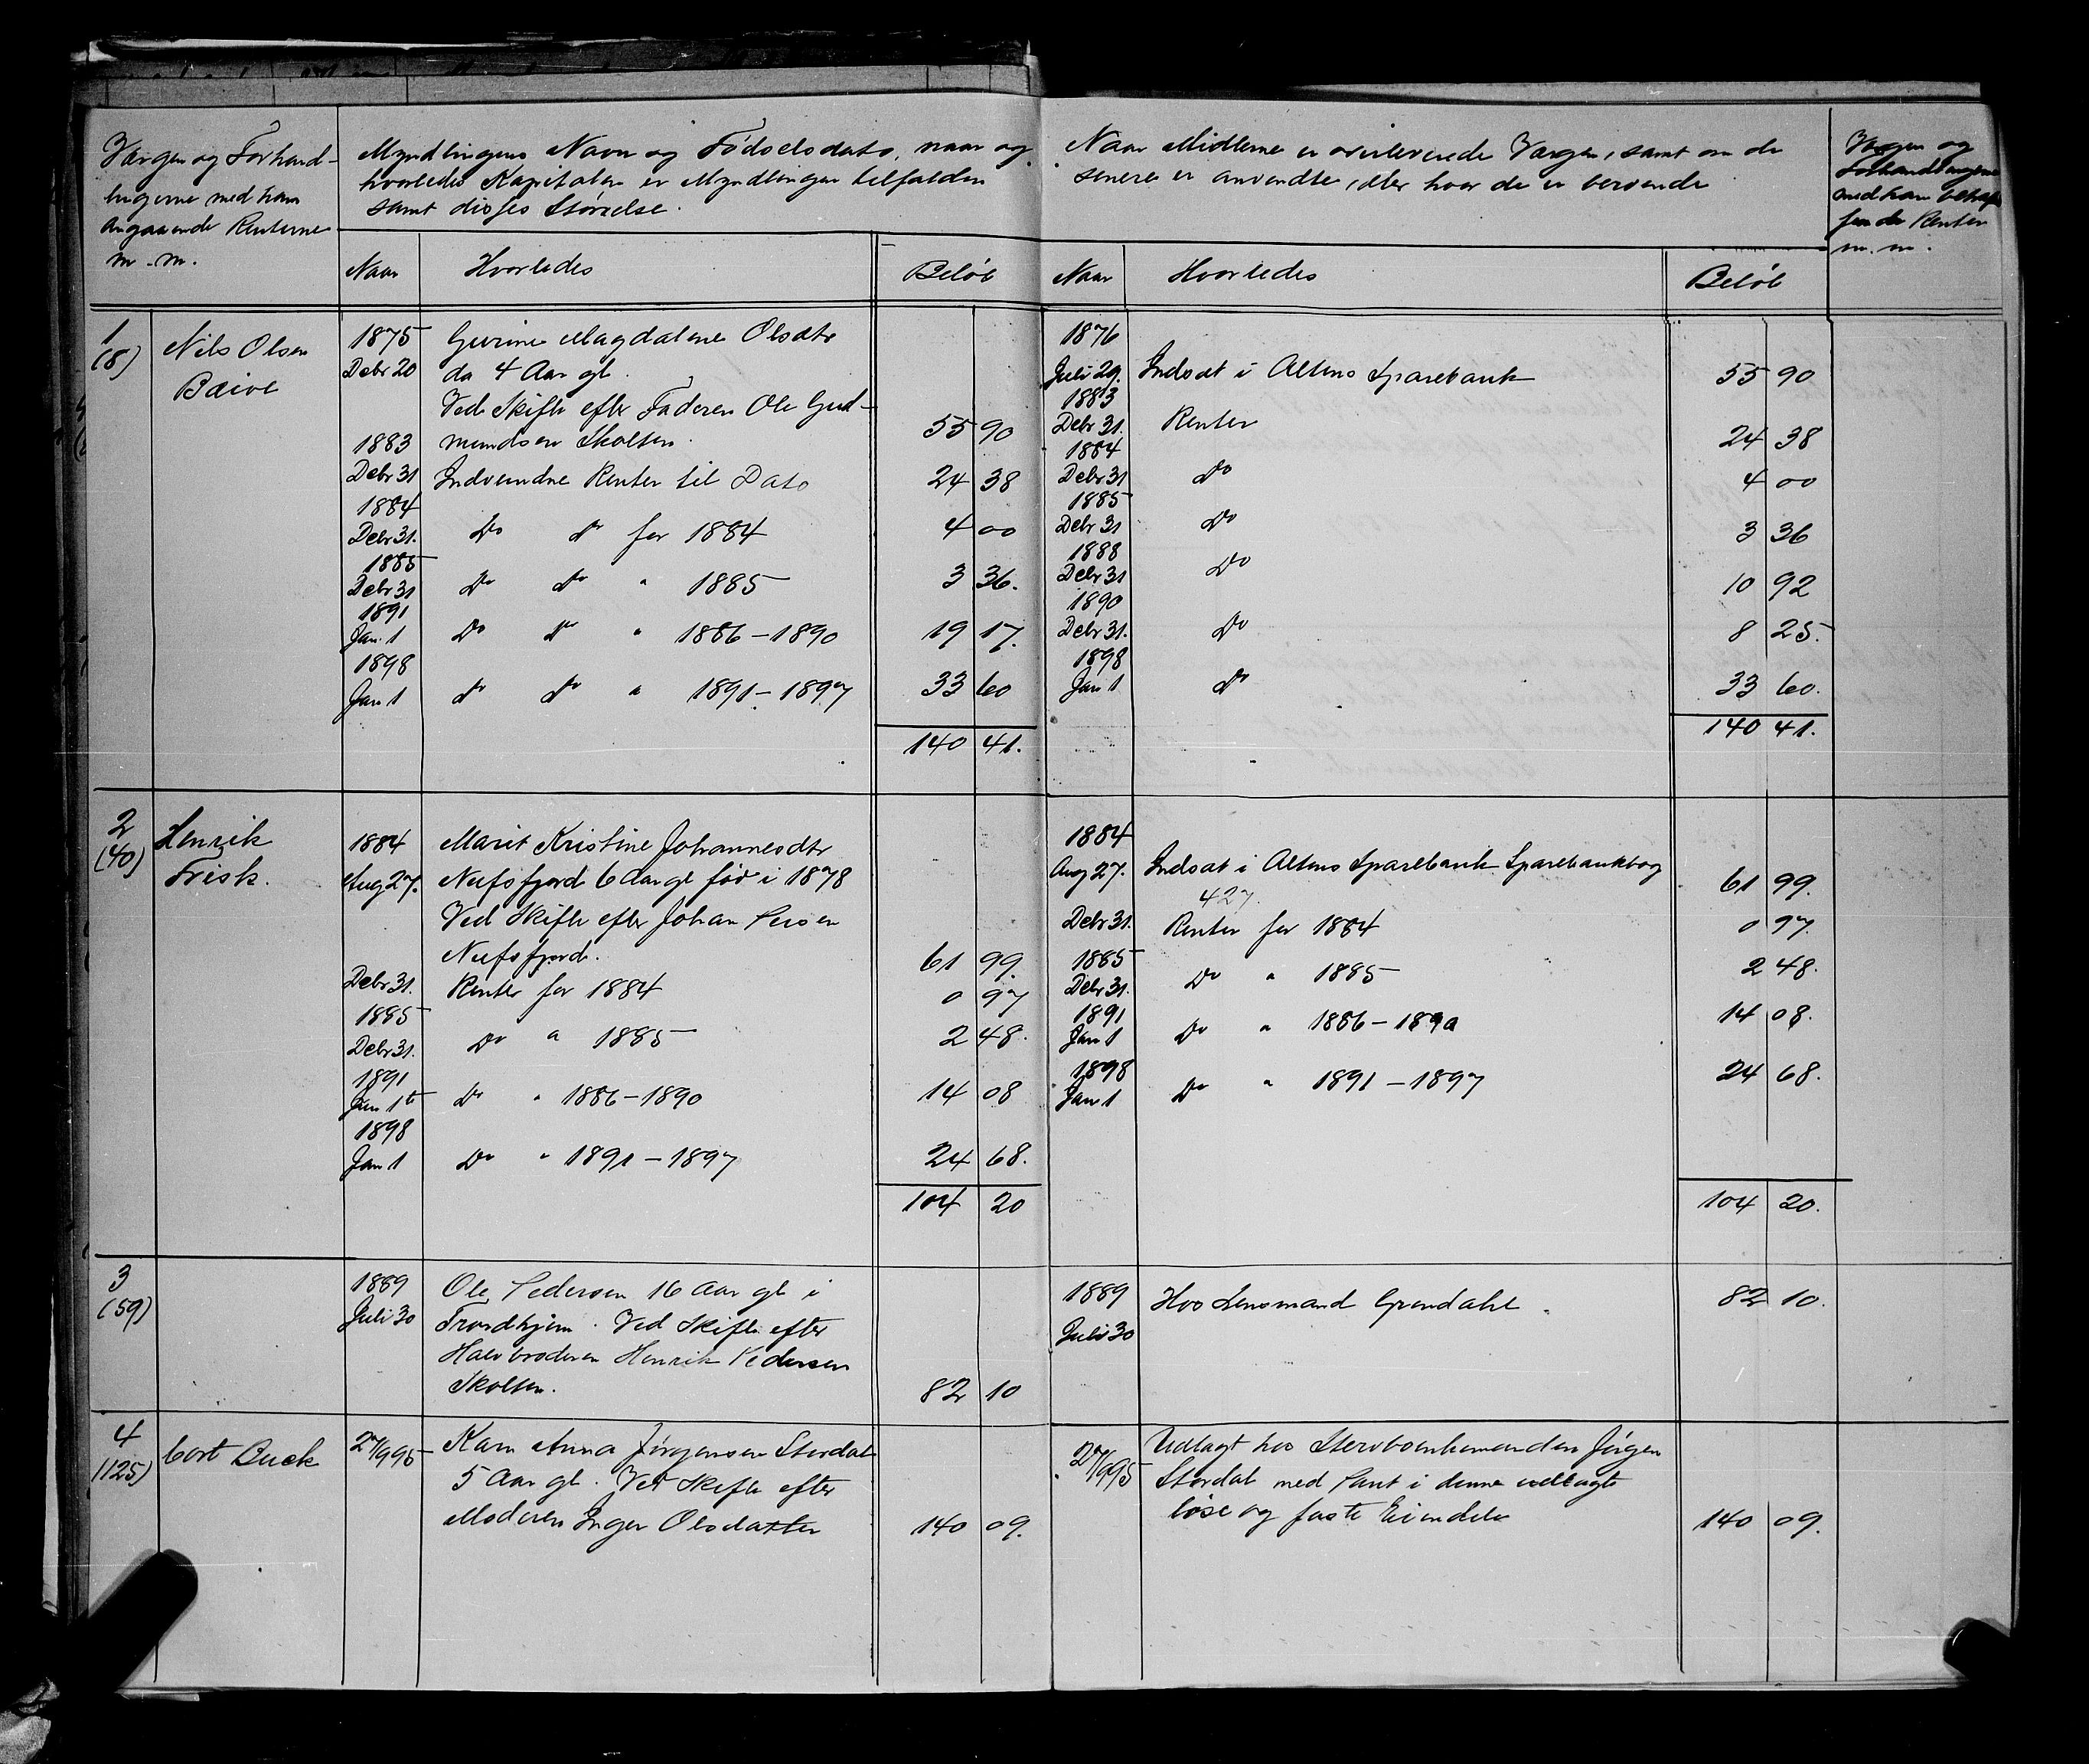 Værgen og Forhand-
lingerne med ham
angaaende Renterne
m. m.
Myndlingens Navn og Fødselsdato, naar og
hvorledes Kapitalen er Myndlingen tilfalden
samt disses Størrelse.
Naar Midlerne er overleverede Værgen, samt om de
senere er anvendte, eller hvor de er beroende
Værgen og
Forhandlingerne
med ham betræf
fende Renter
m. m.
Naar Hvorledes Beløb Naar Hvorledes Beløb
1
(8)
Nils Olsen
Bæivi
1875
Debr 20
Gurine Magdalene Olsdtr
da 4 Aar gl.
Ved Skifte efter Faderen Ole Gud-
mundsen Skolten. 55 90
1883
Debr 31 Indvundne Renter til Dato 24 38
1884
Debr 31. Do do for 1884 4 00
1885
Debr 31 Do do " 1885 3 36.
1891
Jan. 1 Do do " 1886-1890 19 17.
1898
Jan 1 do do " 1891-1897 33 60
140 41.
1876
Juli 29. Indsat i Altens Sparebank 55 90
1883
Debr 31. Renter 24 38
1884
Debr 31 do 4 00
1885
Debr 31 do 3 36
1888
Debr 31 Do 10 92
1890
Debr 31. Do 8 25.
1898
Jan 1 do 33 60.
140 41.
2
(40)
Henrik
Frisk.
1884
Aug 27.
Marit Kristine Johannesdtr
Nufsfjord 6 Aar gl fød i 1878
Ved Skifte efter Johan Persen
Nufsfjord. 61 99.
Debr 31. Renter for 1884 0 97
1885
Debr 31. Do " 1885 2 48.
1891
Jan 1te Do " 1886-1890 14 08
1898
Jan 1 Do " 1891-1897 24 68.
104 20
1884
Aug 27. Indsat i Altens Sparebank Sparebankbog 61 99.
427.
Debr 31. Renter for 1884 0 97.
1885
Debr 31. Do " 1885 2 48.
1891
Jan 1 Do " 1886-1890 14 08.
1898
Jan 1 Do " 1891-1897 24 68.
104 20.
3
(59)
1889
Juli 30
Ole Pedersen 16 Aar gl i
Trondhjem. Ved Skifte efter
Halvbroderen Henrik Pedersen
Skolten. 82 10
1889
Juli 30
Hos Lensmand Grendahl. 82 10.
4
(125)
Cort Buck
27/9 95
Karn Anna Jørgensen Stordal
5 Aar gl. Ved Skifte efter
Moderen Inger Olsdatter 140 09.
27/9 95
Udlagt hos Stervboenkemanden Jørgen
Stordal med Pant i denne udlagte
løse og faste Eiendele 140 09.